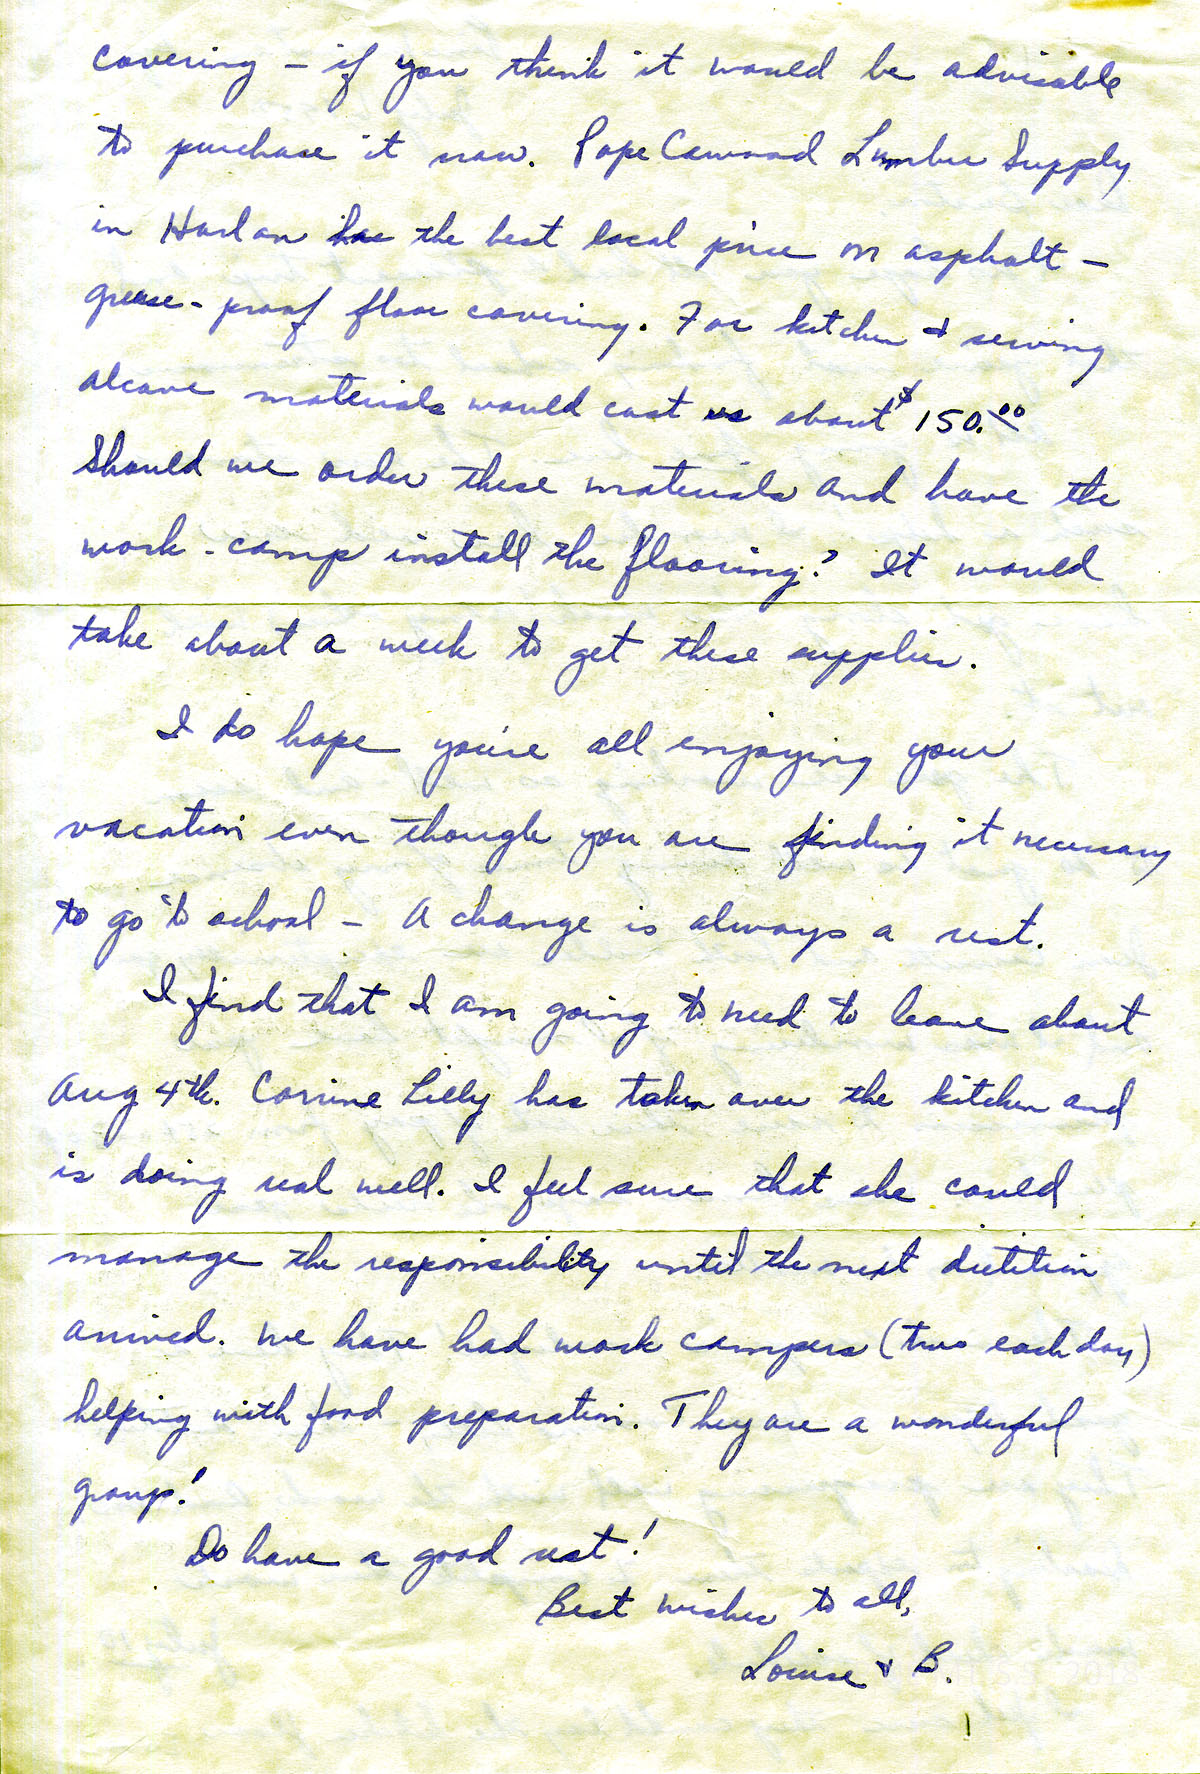 covering – if you think it would be advisable
to purchase it now. Pope Cawood Lumber Supply
in Harlan has the best local price on asphalt –
grease-proof floor covering. For kitchen & serving
alcove materials would cost us about $150.00
Should we order these materials and have the
work-camp install the flooring? It would
take about a week to get these supplies.
I do hope you're all enjoying your
vacation even though you are finding it necessary
to go to school – A change is always a rest.
I find that I am going to need to leave about
Aug 4th. Corrine Lilly has taken over the kitchen and
is doing real well. I feel sure that she could
manage the responsibility until the next dietitian
arrived. We have had work campers (two each day)
helping with food preparation. They are a wonderful
group!
Do have a good rest!
Best wishes to all,
Louise & B.